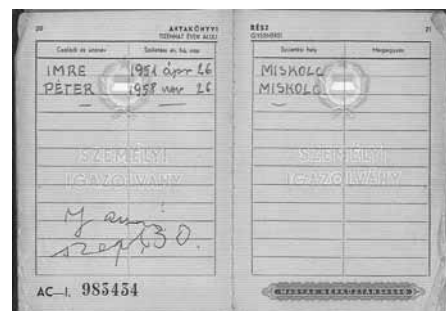 20
ANYAKÖNYVI
TIZENHAT ÉVEN ALULI
Családi és utónév
Születési év, hó, nap
IMRE 1951 ápr 26
PÉTER 1958 nov 26
SZEMÉLYI
IGAZOLVÁNY
szept 30.
AC—I. 983454
RÉSZ
GYERMEKEI
21
Születési hely
Megjegyzés
MISKOLC
MISKOLC
SZEMÉLYI
IGAZOLVÁNY
MAGYAR NÉPKÖZTÁRSASÁG